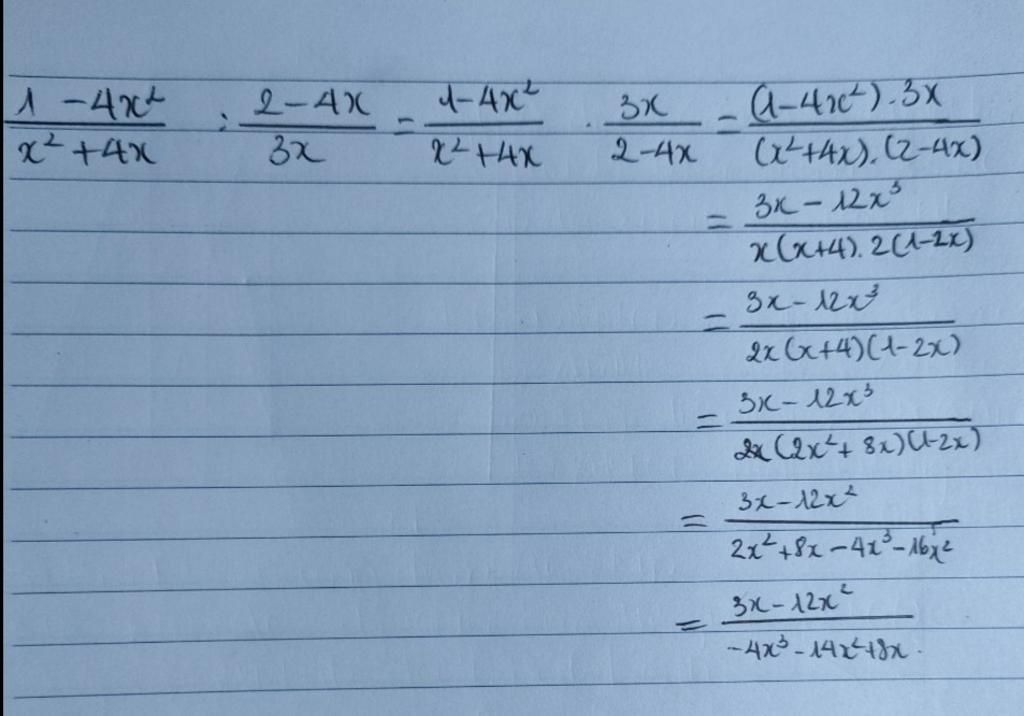 (1 - 4x²)/(x² + 4x) : (2 - 4x)/(3x) = (1 - 4x²)/(x² + 4x) . (3x)/(2 - 4x) = ((1 - 4x²) . 3x)/((x² + 4x) . (2 - 4x))
= (3x - 12x³)/(x(x+4) . 2(1 - 2x))
= (3x - 12x³)/(2x(x+4)(1 - 2x))
= (3x - 12x³)/(2x(2x² + 8x)(1 - 2x))
= (3x - 12x²)/(2x² + 8x - 4x³ - 16x²)
= (3x - 12x²)/(-4x³ - 14x² + 8x) .